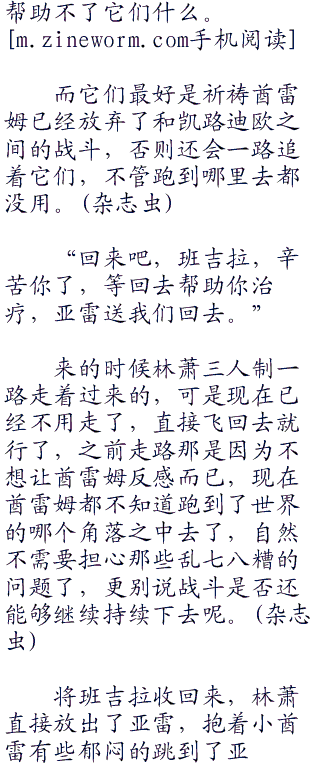 帮助不了它们什么。
[m.zineworm.com手机阅读]
而它们最好是祈祷酋雷
姆已经放弃了和凯路迪欧之
间的战斗，否则还会一路追
着它们，不管跑到哪里去都
没用。(杂志虫)
“回来吧，班吉拉，辛
苦你了，等回去帮助你治
疗，亚雷送我们回去。”
来的时候林萧三人制一
路走着过来的，可是现在已
经不用走了，直接飞回去就
行了，之前走路那是因为不
想让酋雷姆反感而已，现在
酋雷姆都不知道跑到了世界
的哪个角落之中去了，自然
不需要担心那些乱七八糟的
问题了，更别说战斗是否还
能够继续持续下去呢。(杂志
虫)
将班吉拉收回来，林萧
直接放出了亚雷，抱着小酋
雷有些郁闷的跳到了亚